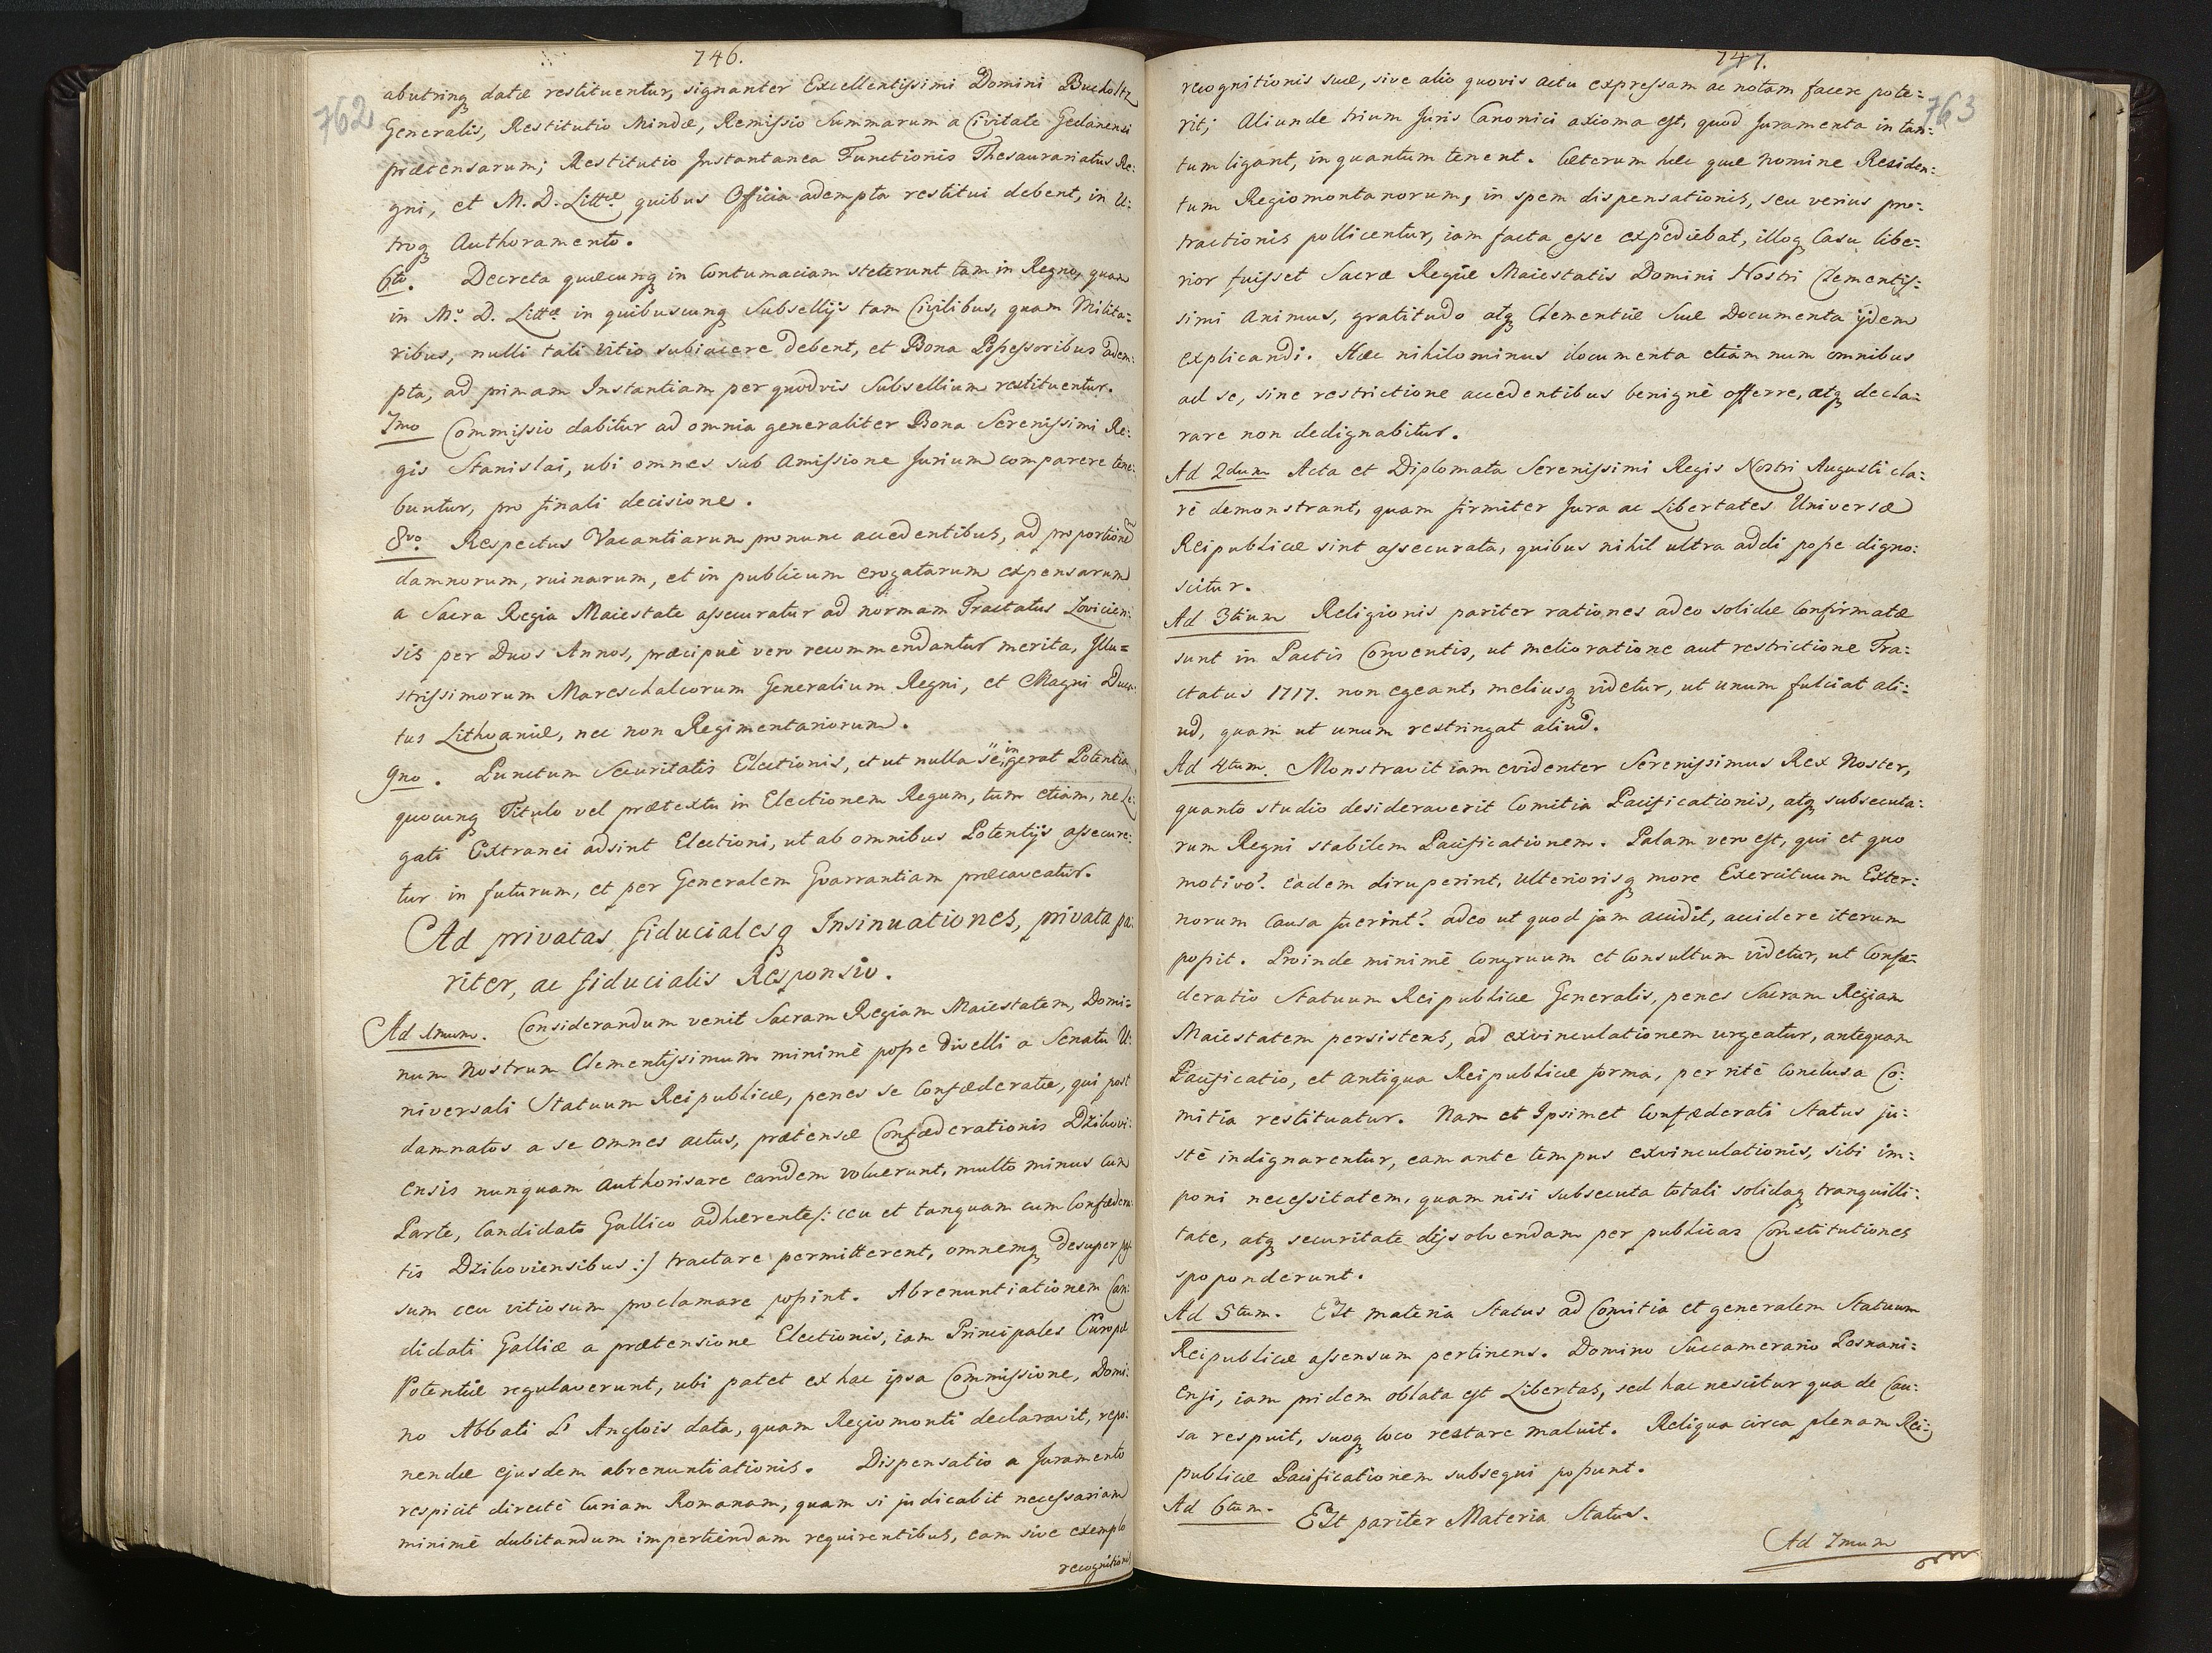 746.
762
abutrinq datæ restituentur, signanter Excellentissimi Domini Bucholtz
Generalis, Restitutio Mindæ, Remissio Summarum a Civitate Gedanensi
prætensarum; Restitutio Instantanea Functionis Thesaurariatus Re:
gni, et M. D. Littæ quibus Officia adempta restitui debent, in U:
troq Authoramento.
6to. Decreta quæcunq in Contumaciam steterunt tam in Regno, quam
in M. D. Littæ in quibuscunq Subsellijs tam Civilibus, quam Milita:
ribus, nulli tali Vitio subiacere debent, et Bona Possessoribus adem:
pta, ad primam Instantiam per quodvis Subsellium restituentur.
7mo Commissio dabitur ad omnia generaliter Bona Serenissimi Re:
gis Stanislai, ubi omnes sub Amissione Jurium comparere tene:
buntur, pro finali decisione.
8vo. Respectus Vacantiarum pronunc accedentibus, ad proportionem
damnorum, ruinarum, et in publicum erogatarum expensarum
a Sacra Regia Maiestate assecuratur ad normam Tractatus Lovicien:
sis per Duos Annos, præcipuè vero recommendantur merita, Illu=
strissimorum Mareschalcorum Generalium Regni, et Magni Duca:
tus Lithvaniæ, nec non Regimentariorum.
9no. Punctum Securitatis Electionis, et ut nulla se ingerat Potentia
quocunq Titulo vel prætextu in Electionem Regum, tum etiam, ne Le:
gati Extranei adsint Electioni, ut ab omnibus Potentijs assecure:
tur in futurum, et per Generalem Gvarrantiam præcaveatur.
Ad privatas fiducialesq Insinuationes, privata pa:
riter, ac fiducialis Responsio.
Ad 1mum. Considerandum venit Sacram Regiam Maiestatem, Domi:
num Nostrum Clementissimum minimè posse divelli a Senatu U:
niversali Statuum Reipublicæ, penes se Confæderatæ, qui post
damnatos a se omnes actus, prætensæ Confæderationis Dzikovi:
ensis nunquam Authorisare eandem voluerunt, multo minus cum
Parte, Candidato Gallico adhærente /: ceu et tanquam cum Confædera:
tis Dzikoviensibus :/ tractare permitterent, omnemq desuper pas:
sum ceu vitiosum proclamare possint. Abrenuntiationem Can:
didati Galliæ a prætensione Electionis, iam Principales Europæ
Potentiæ regulaverunt, ubi patet ex hac ipsa Commissione, Domi:
no Abbati L'Anglois data, quam Regiomonti declaravit, repo:
nendæ ejusdem abrenuntiationis. Dispensatio a Juramento
respicit directè Curiam Romanam, quam si judicabit necessariam
minimè dubitandum impertiendam requirentibus, eam sive exemplo
recognitionis
747.
763
recognitionis suæ, sive alio quovis actu expressam ac notam facere pote:
rit; Aliunde trium Juris Canonici axioma est, quod Juramenta in tan:
tum ligant, in quantum tenent. Cæterum hæc quæ Nomine Residen:
tum Regiomontanorum, in spem dispensationis, seu verius pro:
tractionis pollicentur, iam facta esse expediebat, illoq Casu libe:
rior fuisset Sacræ Regiæ Maiestatis Domini Nostri Clementis:
simi Animus, gratitudo atq Clementiæ Suæ Documenta ijdem
explicandi. Hæc nihilominus documenta etiam num omnibus
ad se, sine restrictione accedentibus benignè offerre, atq decla:
rare non dedignabitur.
Ad 2dum Acta et Diplomata Serenissimi Regis Nostri Augusti cla:
rè demonstrant, quam firmiter Jura ac Libertates Universæ
Reipublicæ sint assecurata, quibus nihil ultra addi posse digno:
scitur.
Ad 3tium Religionis pariter rationes adeo solidæ Confirmatæ
sunt in Pactis Conventis, ut melioratione aut restrictione Tra:
ctatus 1717. non egeant, meliusq videtur, ut unum fulciat ali:
ud, quam ut unum restringat aliud.
Ad 4tum. Monstravit iam evidenter Serenissimus Rex Noster,
quanto studio desideraverit Comitia Pacificationis, atq subsecuta:
rum Regni stabilem Pacificationem. Palam vero est, qui et quo
motivo? eadem diruperint, Ulteriorisq moræ Exercituum Exter:
norum Causa fuerint? adeo ut quod jam accidit, accidere iterum
possit. Proinde minimè Congruum et Consultum videtur, ut Confæ:
deratio Statuum Reipublicæ Generalis, penes Sacram Regiam
Maiestatem persistens, ad exvinculationem urgeatur, antequam
Pacificatio, et antiqua Reipublicæ forma, per ritè Conclusa Co:
mitia restituatur. Nam et Ipsimet Confæderati Status ju:
stè indignarentur, eam ante tempus exvinculationis, sibi im:
poni necessitatem, quam nisi subsecuta totali solidaq tranquilli:
tate, atq securitate dissolvendam per publicas Constitutiones
spoponderunt.
Ad 5tum. Est materia Status ad Comitia et generalem Statuum
Reipublicæ assensum pertinens. Domino Succamerario Posnani:
ensi, iam pridem oblata est Libertas, sed hac nescitur qua de Cau:
sa respuit, suoq loco restare maluit. Reliqua circa plenam Rei:
publicæ Pacificationem subsequi possunt.
Ad 6tum. Est pariter Materia Status.
Ad 7mum